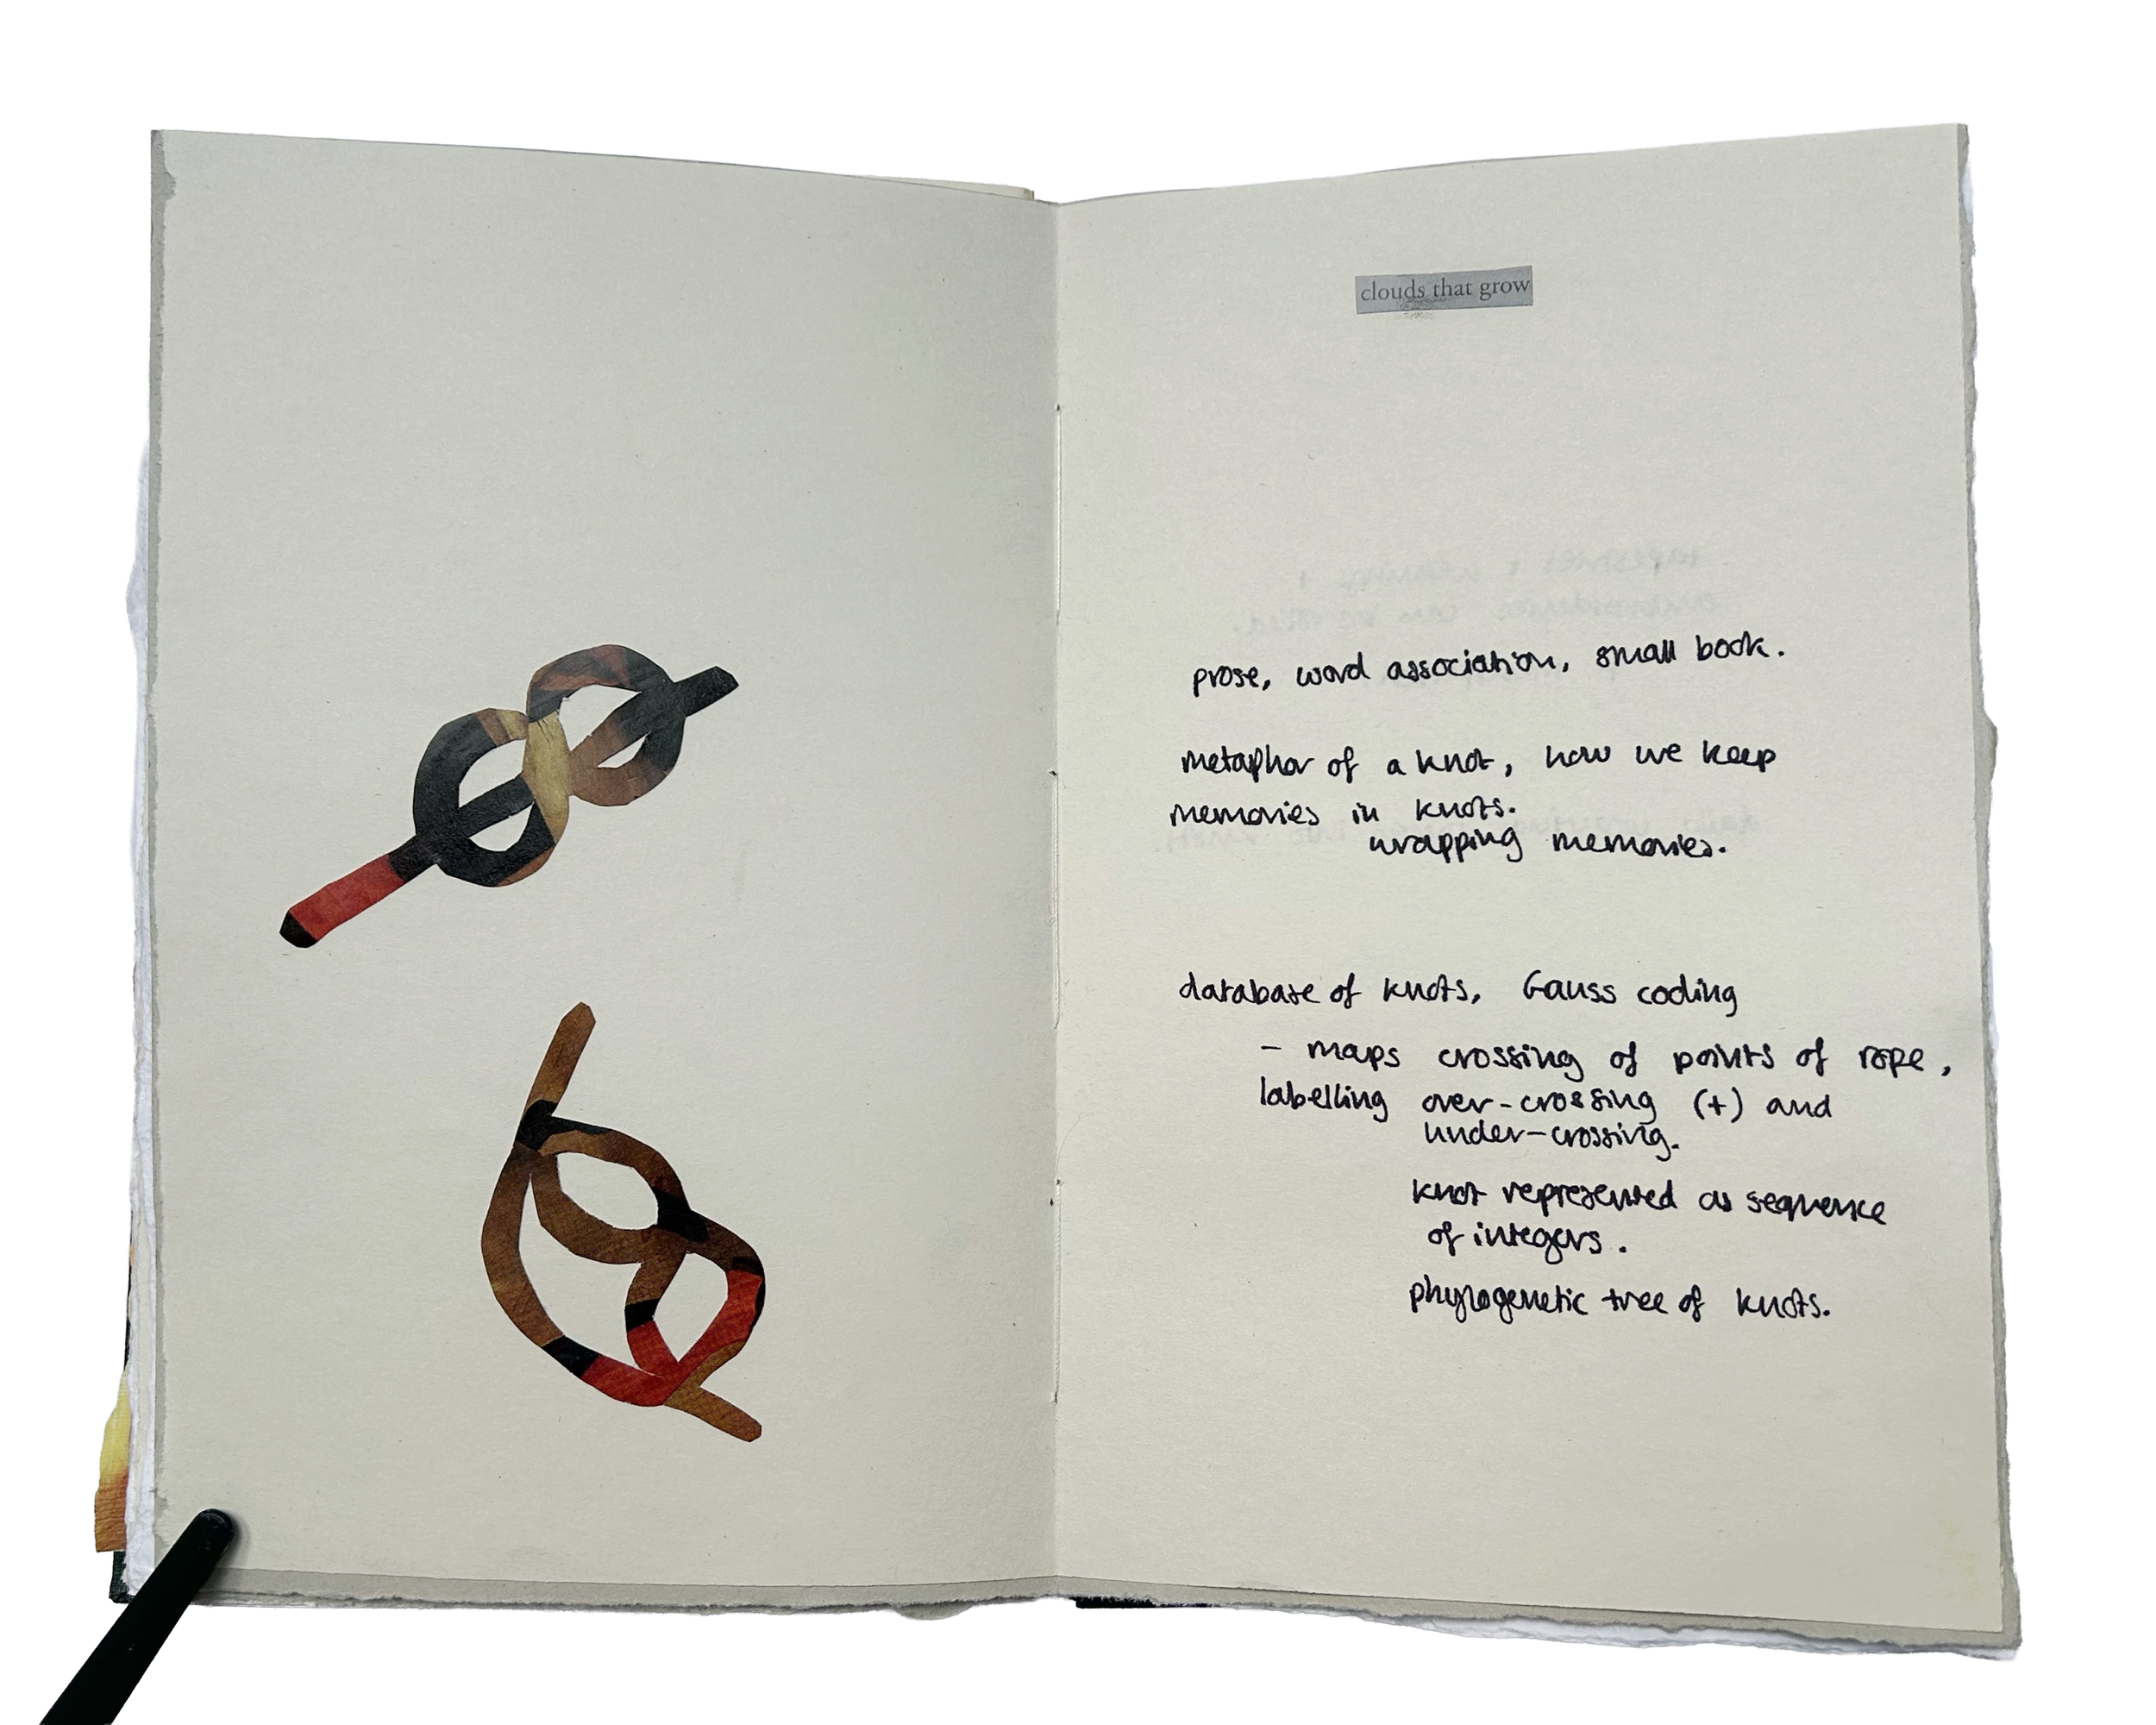 clouds that grow
prose, word association, small book.
metaphor of a knot, how we keep
memories in knots.
wrapping memories.
database of knots, Gauss coding
- maps crossing of points of rope,
labelling over-crossing (+) and
under-crossing.
knot represented as sequence
of integers.
phylogenetic tree of knots.